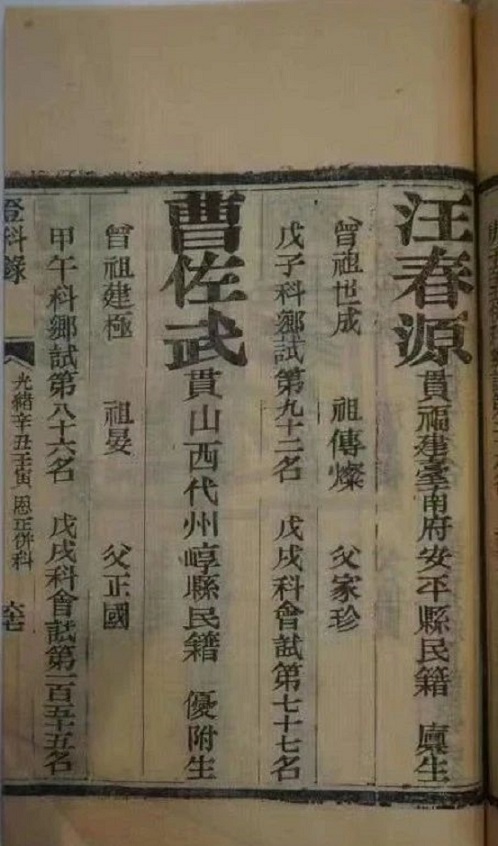 汪春源 貫福建臺南府安平縣民籍 廩生
曾祖世成 祖傳燦 父家珍
戊子科鄉試第九十二名 戊戌科會試第七十七名
曹佐武 貫山西代州崞縣民籍 優附生
曾祖建極 祖晏 父正國
甲午科鄉試第八十六名 戊戌科會試第一百五十五名
登科錄 光緒辛丑壬寅恩正併科 六七